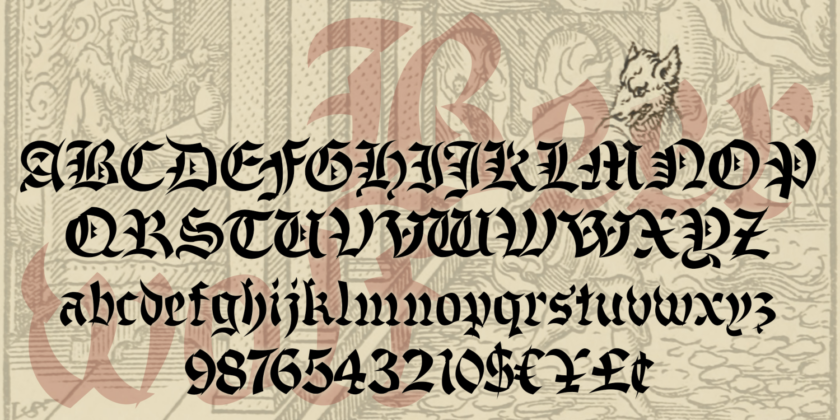 Beer
ABCDEFGHIJKLMNOP
QRSTUVVWWWXYZ
wolf
abcdefghijklmnopqrstuvwxyz
9876543210$€¥£¢